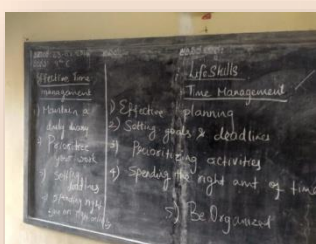 Effective Time
management
1) Maintain a
daily diary
2) Prioritize
your work
3) Setting
4) Spending right
time on right
Life Skills
Time Management
1) Effective planning
2) Setting goals & deadlines
3) Prioritizing activities
4) Spending the right amt of time
5) Be Organized